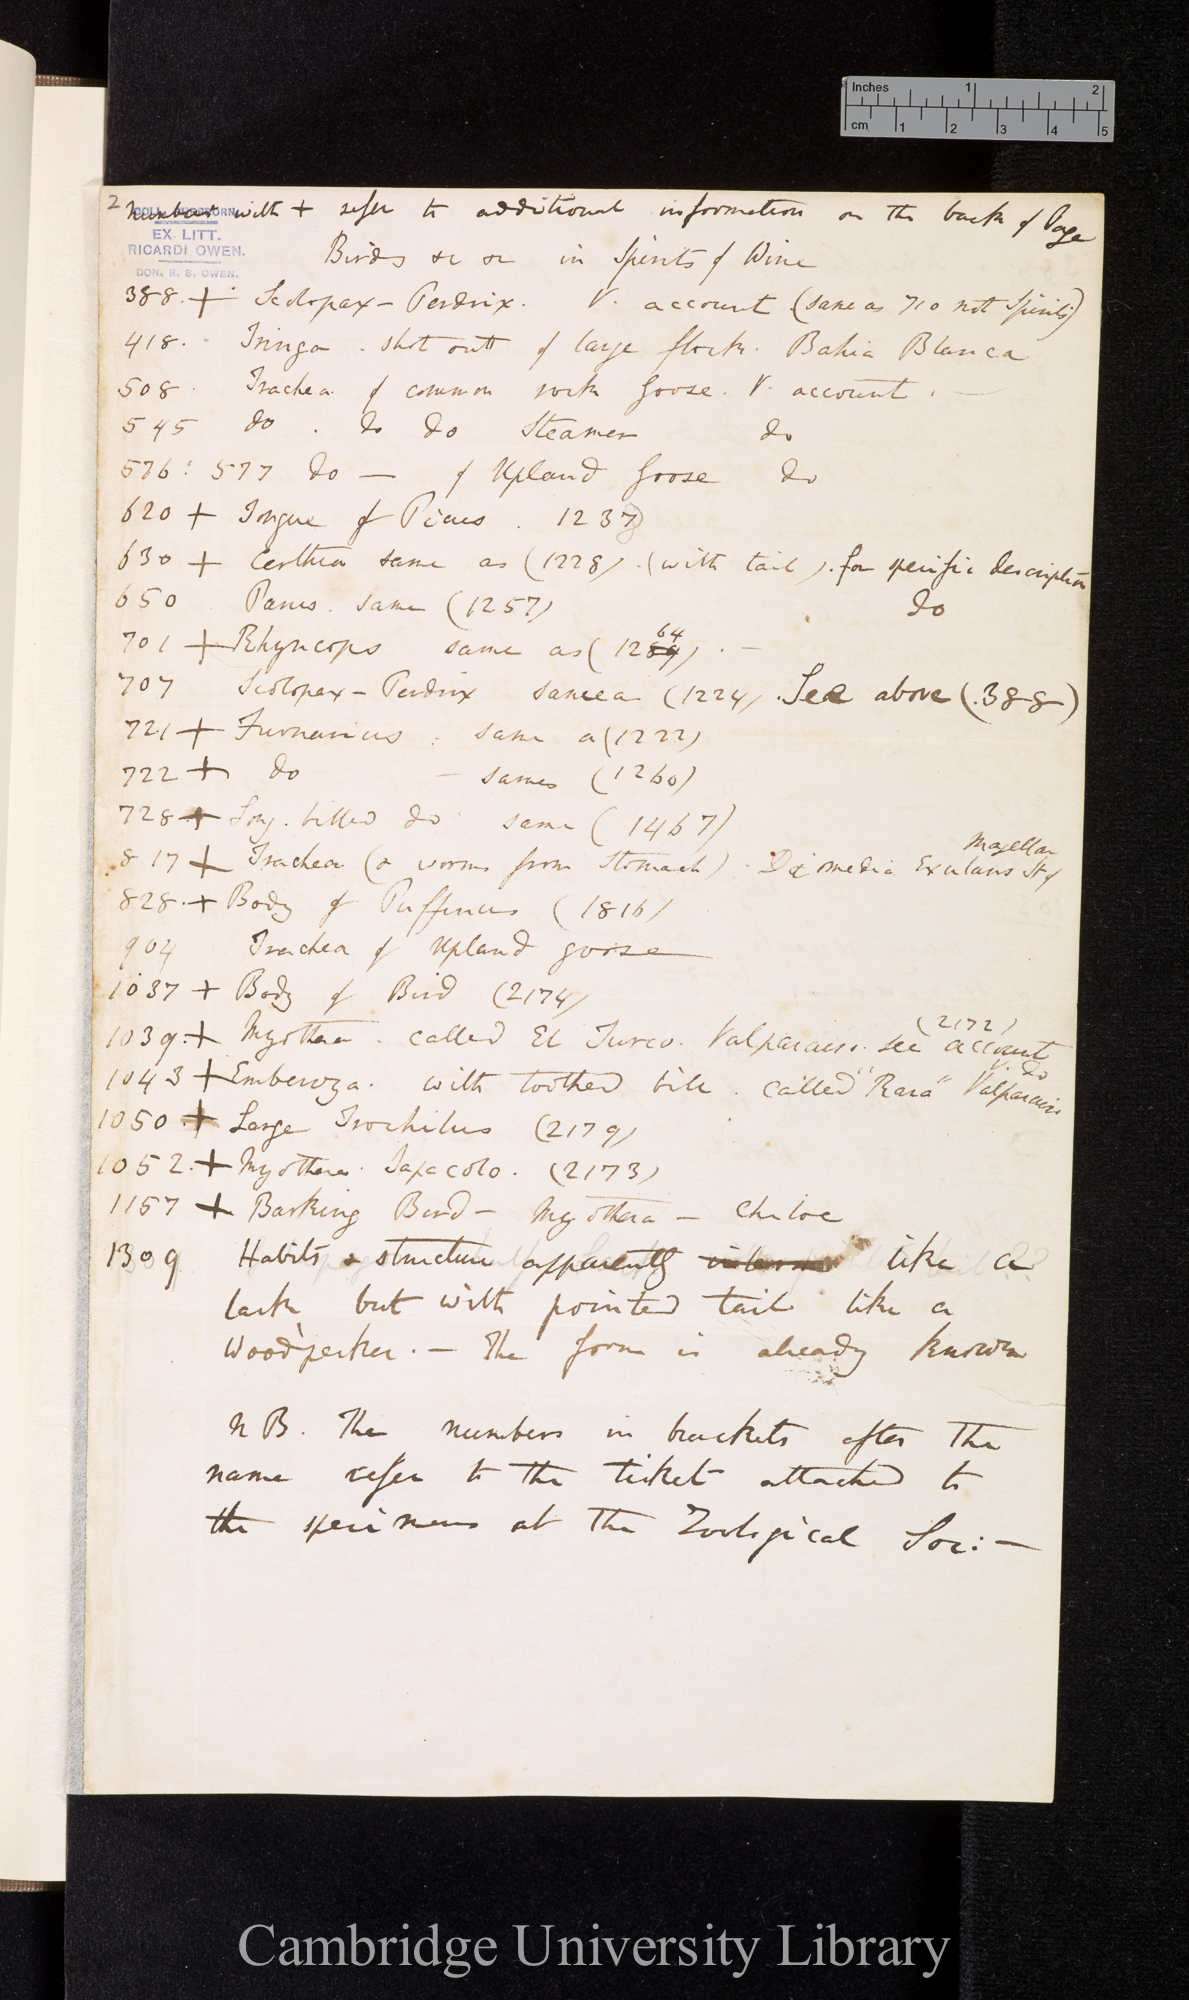 Inches 1 2
cm 1 2 3 4 5
2
Numbers with + refer to additional information on the back of Page
COLL. HUNSDORN.
EX LITT.
RICARDI OWEN.
DON. R. S. OWEN.
Birds &c &c in Spirits of Wine
388. + Scolopax - Perdrix. V. account (same as 710 not Spirits)
418. Tringa. shot out of large flock. Bahia Blanca
508. Trachea of common rock Goose. V. account. —
545 do. do do Steamer do
576: 577 do — of Upland Goose do
620 + Tongue of Picus. 1237
630 + Certhia same as (1228). (with tail). for specific description
650 Parus. same (1257) do
64
701 + Rhyncops same as (1284). —
707 Scolopax - Perdrix same a (1224). See above (.388)
721 + Furnarius. same a (1222)
722 + do — same (1260)
728 + Long. billed do same (1467)
Magellan
817 + Trachea (& worms from Stomach). Diomedia Exulans St of
828. + Body of Puffinus (1816)
904 Trachea of Upland goose
1037 + Body of Bird (2174)
(2172)
1039. + Myothera. called El Turco. Valparaiso. see account
V. do
1043 + Emberiza. with toothed bill. called "Rara" Valparaiso
1050 + Large Trochilus (2179)
1052. + Myothera. Tapacolo. (2173)
1157 + Barking Bird — Myothera — Chiloe
1309 Habits & structure apparently like a
lark but with pointed tail like a
Woodpecker. — The form is already known
NB. The numbers in brackets after the
name refer to the ticket attached to
the specimens at the Zoological Soc: —
Cambridge University Library